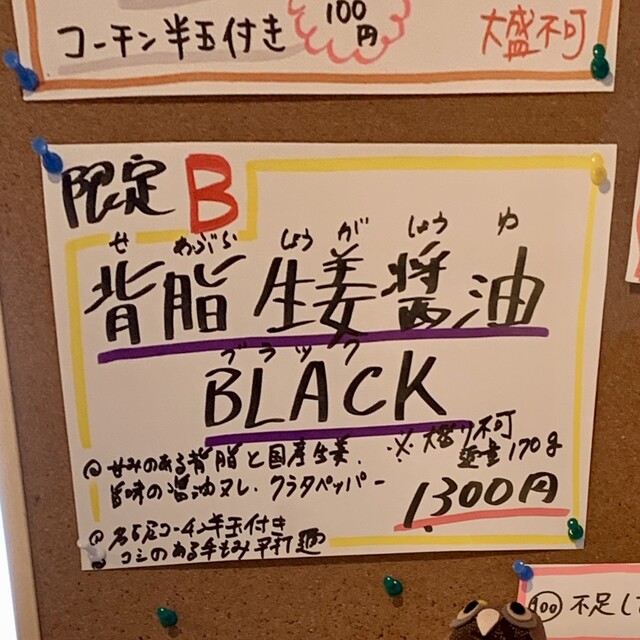 コーチン半玉付き
100
円
大盛不可
限定 B
せ あぶら しょう が しょう ゆ
背脂生姜醤油
ブラック
BLACK
※大盛り不可
麺量170g
甘みのある背脂と国産生姜、
旨味の醤油ダレ、クラタペッパー
1,300円
名古屋コーチン半玉付き
コシのある手もみ平打麺
不足し